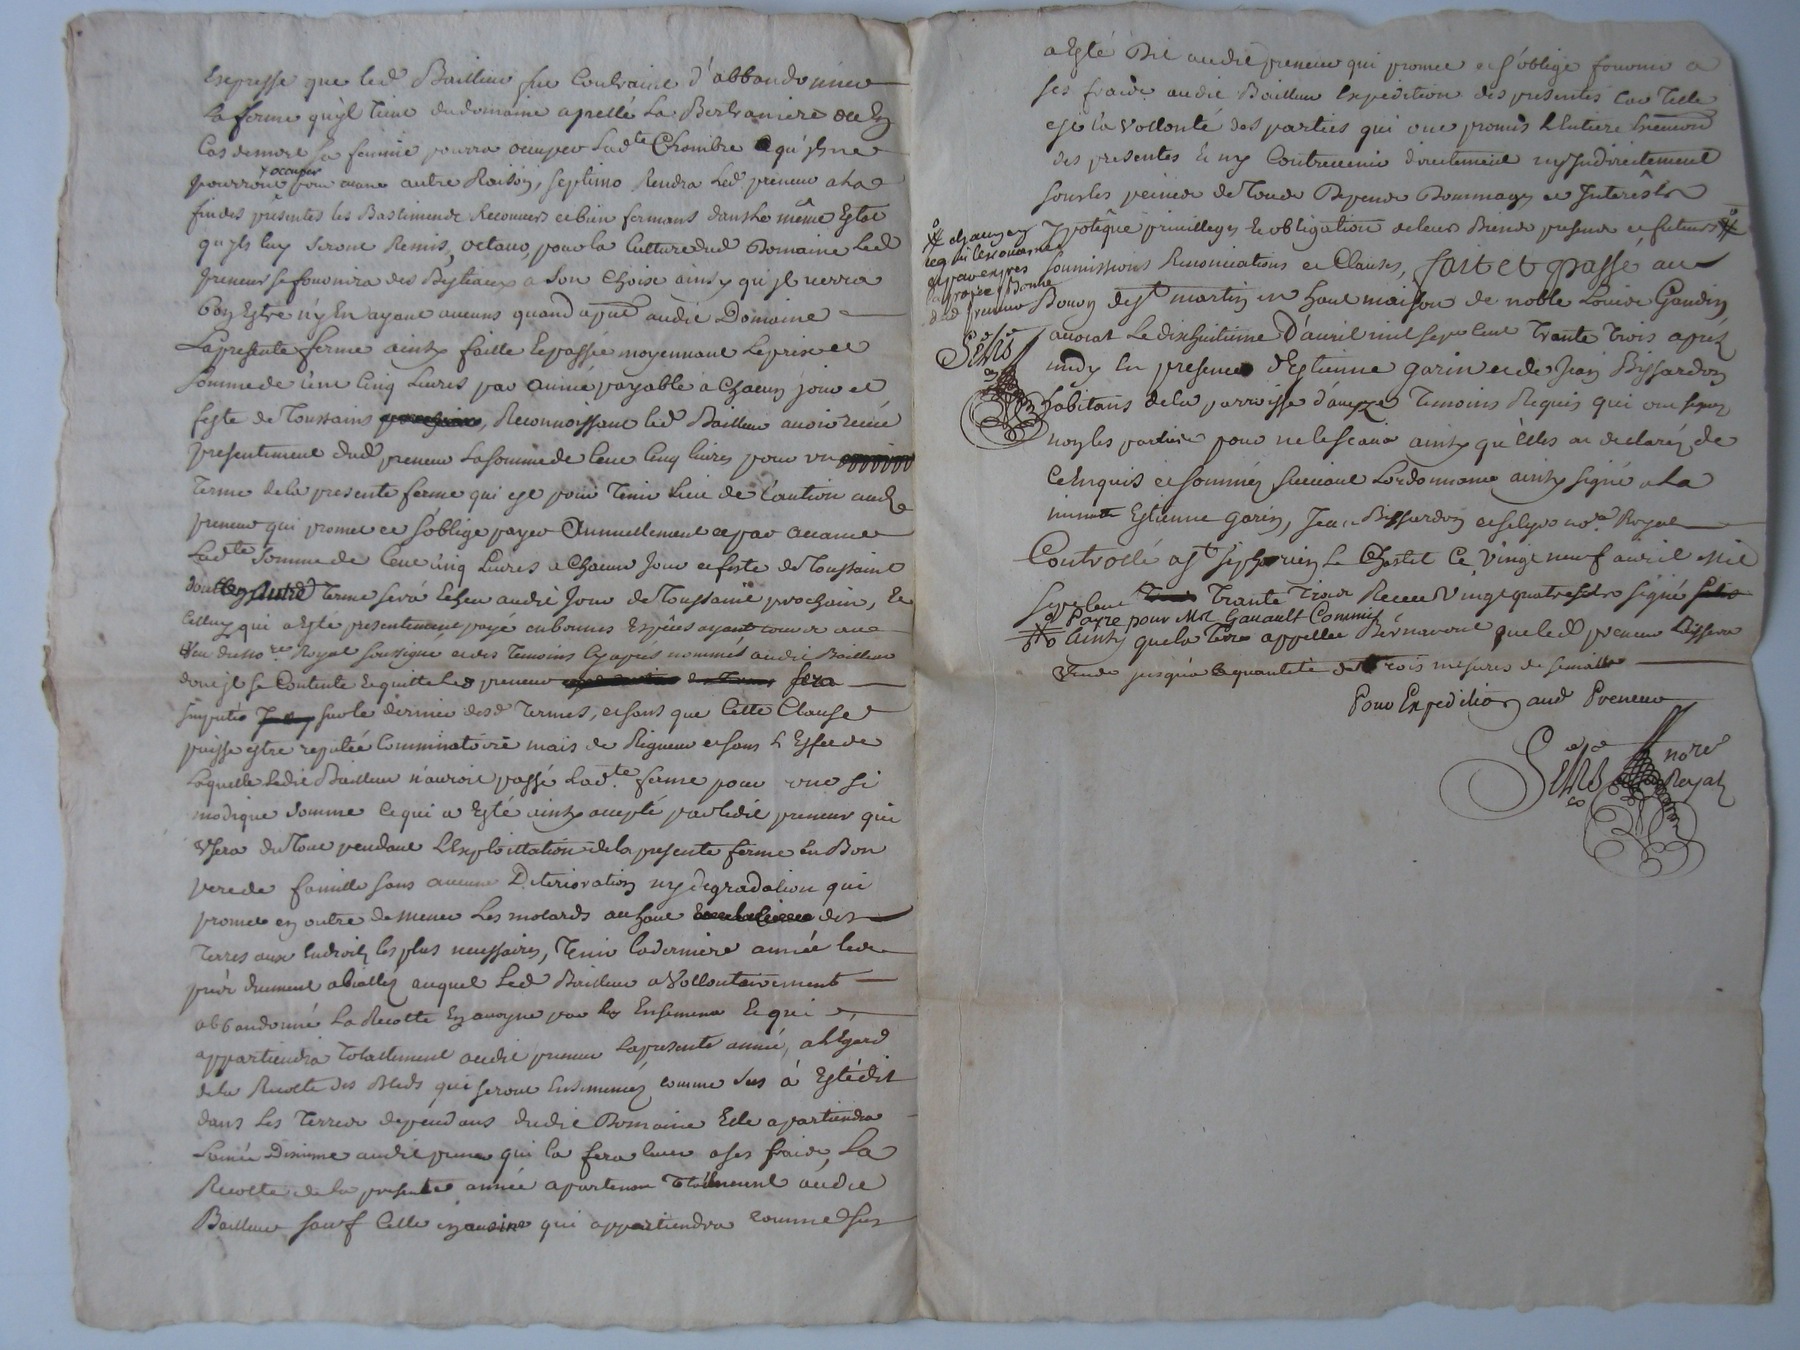 Expresse que led. Bailleur fut Contraint d'abbandonner
La ferme qu'jl tient du domaine apellé La Bertraniere ou En
Cas de mort sa femme pourra occuper Ladte Chambre qu'jls ne
pourront occuper pour aucune autre Raison, septimo Rendra Led. preneur a La
fin des présentes les Bastiments Recouverts et bien fermans dans Le même Estat
qu'jls luy seront Remis, octavo, pour la Culture dud. Domaine Led.
preneur se fournira des Bestiaux a son Choix ainsy qu'jl verra
Bon Estre n'y En ayant aucuns quand a pnt audit Domaine
La presente ferme ainsy faitte Et passée moyennant Le prix et
somme de Cent Cinq Livres par année payable a Chacun jour et
feste de Toussaints, Reconnoissant led. Bailleur avoir receu
presentement dud. preneur La somme de Cent Cinq livres pour un
Terme de la presente ferme qui est pour Tenir Lieu de Caution aud.
preneur qui promet et s'oblige payer Annuellement et par avance
Ladte somme de Cent Cinq Livres a Chacun Jour et feste de Toussaint
dont Terme sera Echeu audit Jour de Toussaint prochain, Et
Celluy qui a Esté presentement payé en bonnes Espèces ayant cours au
Veu du Nore Royal soussigné et des Temoins cy apres nommés audit Bailleur
dont jl se Contente Et quitte Led. preneur sera
jmputé sur le dernier desd. Termes, et sans que Cette Clause
puisse estre reputée Comminatoire mais de Rigueur et sans L'Effet de
Laquelle Ledit Bailleur n'auroit passé Ladte ferme pour une si
modique somme Ce qui a Esté ainsy accepté par Ledit preneur qui
Usera du Tout pendant L'Exploittation de la presente ferme En Bon
pere de famille sans aucune Deterioration ny degradation qui
promet en outre de mener Les molards au haut des
Terres aux Endroits les plus necessaires, Tenir la derniere année les
prés dument abialles auquel Led. Bailleur a Vollontairement
abbandonné La Recolte En avoyne par Ensemencé Et qui
appartiendra Totallement audit preneur La presente année, a L'Egard
de la Recolte des Bleds qui seront Ensemencés comme sus a Esté dit
dans Les Terres dependans dudit Domaine Elle apartiendra
L'année Dixieme audit preneur qui la fera lever a ses frais, La
Recolte de la presente année apartenant Totallement audit
Bailleur sauf Celle en avoine qui appartiendra comme dessus
a Esté Dit audit preneur qui promet et s'oblige fournir a
ses fraids audit Bailleur Expedition des presentes Car Telle
est la Vollonté des parties qui ont promis L'Entiere
des presentes Et n'y Contrevenir directement ny Indirectement
sous les peines de Tous Depens Dommages et Interêsts
Ypotêque privilleges Et obligation de leurs Biens presents et futurs
soumissions Renonciations et Clauses, fait et passé au
Bourg de St martin en haut maison de noble Louis Gaudin
avocat Le dixhuitieme D'avril mil sept Cent Trante Trois apres
midy En presence d'Estienne garin et de Jean Bissardon
habitans de la parroisse d'aveze Temoins Requis qui ont signé
non les parties pour ne le scavoir ainsy qu'Elles ont declaré de
Ce Enquis et sommées suivant L'ordonnance ainsy signé a La
minutte Estienne garin, Jean Bissardon et nore Royal
Controllé a St Siphorien Le Chastel Ce Vingt neuf avril Mil
sept Cent Trante Trois Receu Vingt quatre sols signé
Payre pour Mr Gavault Commis
ainsy que la Terre appellée que led. preneur Laissera
Vuide jusqu'a la quantité de Trois mesures de semaille
Pour Expedition aud. Preneur
nore
Royal